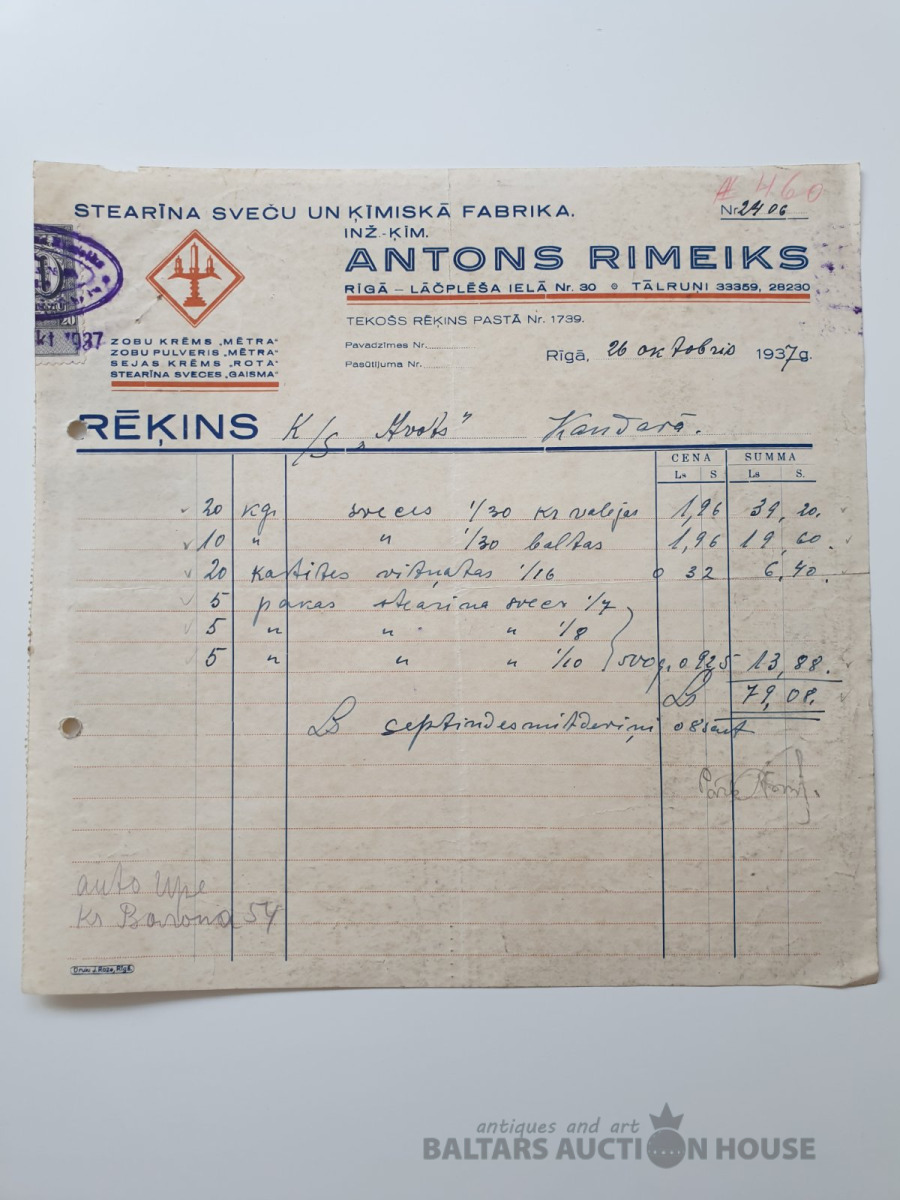 № 460
STEARĪNA SVEČU UN ĶĪMISKĀ FABRIKA.
Nr. 2406
INŽ.-ĶĪM.
ANTONS RIMEIKS
RĪGĀ — LĀČPLĒŠA IELĀ Nr. 30 • TĀLRUŅI 33359, 28230
20
kt 1937
ZOBU KRĒMS „MĒTRA"
ZOBU PULVERIS „MĒTRA"
SEJAS KRĒMS „ROTA"
STEARĪNA SVECES „GAISMA"
TEKOŠS RĒĶINS PASTĀ Nr. 1739.
Pavadzīmes Nr.
Pasūtījuma Nr.
Rīgā, 26 oktobris 1937g.
RĒĶINS K/S „Avots" Kandavā.
CENA SUMMA
Ls S Ls S.
20 kgr sveces 1/30 kr valejas 1,96 39,20.
10 " " 1/30 baltas 1,96 19,60.
20 kastites vitņatas 1/16 0 32 6,40.
5 pakas stearina svec 1/7
5 " " " 1/8
5 " " " 1/10 500g. 0925 13,88.
Ls 79,08.
Ls septindesmitdeviņi 08 sant
auto Upe
Kr Barona 54
Druk. J. Roze, Rīgā
antiques and art
BALTARS AUCTION HOUSE